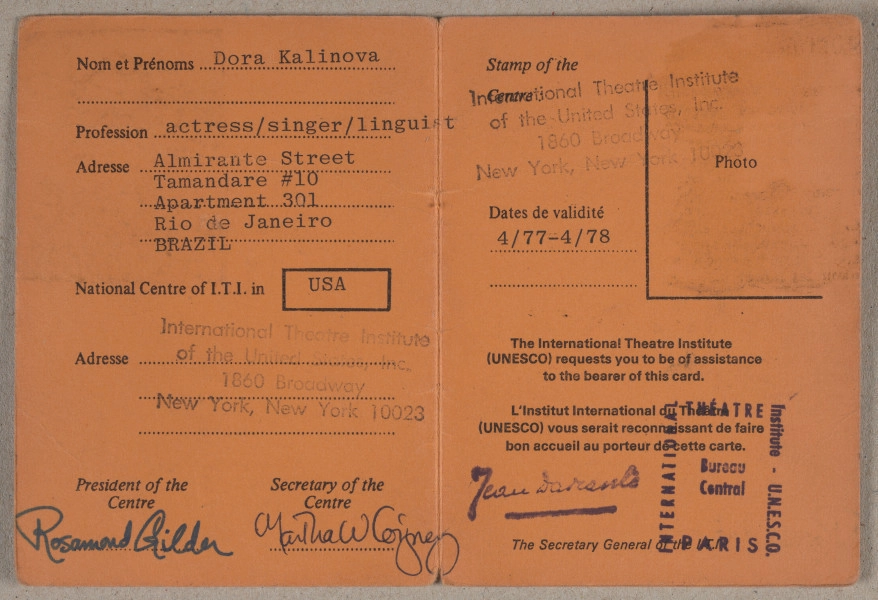 Nom et Prénoms Dora Kalinova
Profession actress/singer/linguist
Adresse Almirante Street
Tamandare #10
Apartment 301
Rio de Janeiro
BRAZIL
National Centre of I.T.I. in USA
International Theatre Institute
Adresse of the United States, Inc.
1860 Broadway
New York, New York 10023
President of the Centre
Rosamond Gilder
Secretary of the Centre
Martha W Coigney
Stamp of the
Centre:
International Theatre Institute
of the United States, Inc.
1860 Broadway
New York, New York 10023
Photo
Dates de validité
4/77-4/78
The International Theatre Institute
(UNESCO) requests you to be of assistance
to the bearer of this card.
L'Institut International du Théâtre
(UNESCO) vous serait reconnaissant de faire
bon accueil au porteur de cette carte.
Jean Darcante
INTERNATIONAL
THÉATRE
Institute - U.N.E.S.C.O.
Bureau
Central
PARIS
The Secretary General of the I.T.I.